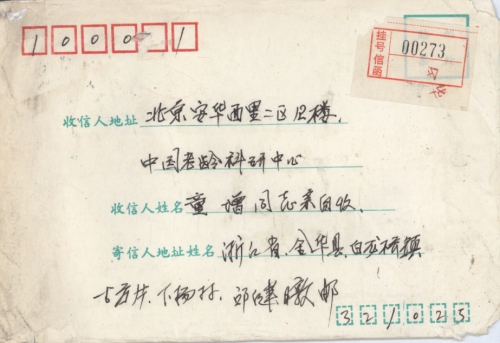 100001
挂号信函
00273
收信人地址 北京安华西里二区12楼,
中国老龄科研中心
收信人姓名 童增同志亲自收
寄信人地址姓名 浙江省,金华县,白龙桥镇
古方井,下杨村,邱 邮
321025